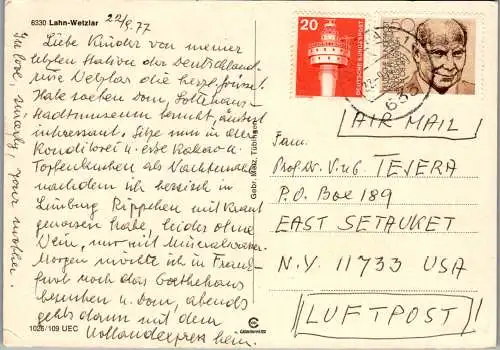 6330 Lahn-Wetzlar
22/9.77
Liebe Kinder von meiner
letzten Station der Deutschland-
reise Wetzlar die herzl. Grüsse!
Habe soeben Dom, Lottehaus
Stadtmuseum besucht, äußerst
interessant. Sitze nun in der
Konditorei u. esse Kakao u.
Topfenkuchen als Nachtmahl
nachdem ich hessisch in
Limburg Rippchen mit Kraut
genossen habe, leider ohne
Wein, nur mit Mineralwasser.
Morgen möchte ich in Frank-
furt noch das Goethehaus
besuchen u. Dom, abends
gehts dann mit dem
Hollandexpress heim.
In love, sincerely, your mother.
1028/109 UEC
Gebr. Metz, Tübingen
20
DEUTSCHE BUNDESPOST
50
633
AIR MAIL!
Fam.
Prof. Dr. V. u. G. TEVERA
P.O. Box 189
EAST SETAUKET
N.Y. 11733 USA
LUFTPOST!